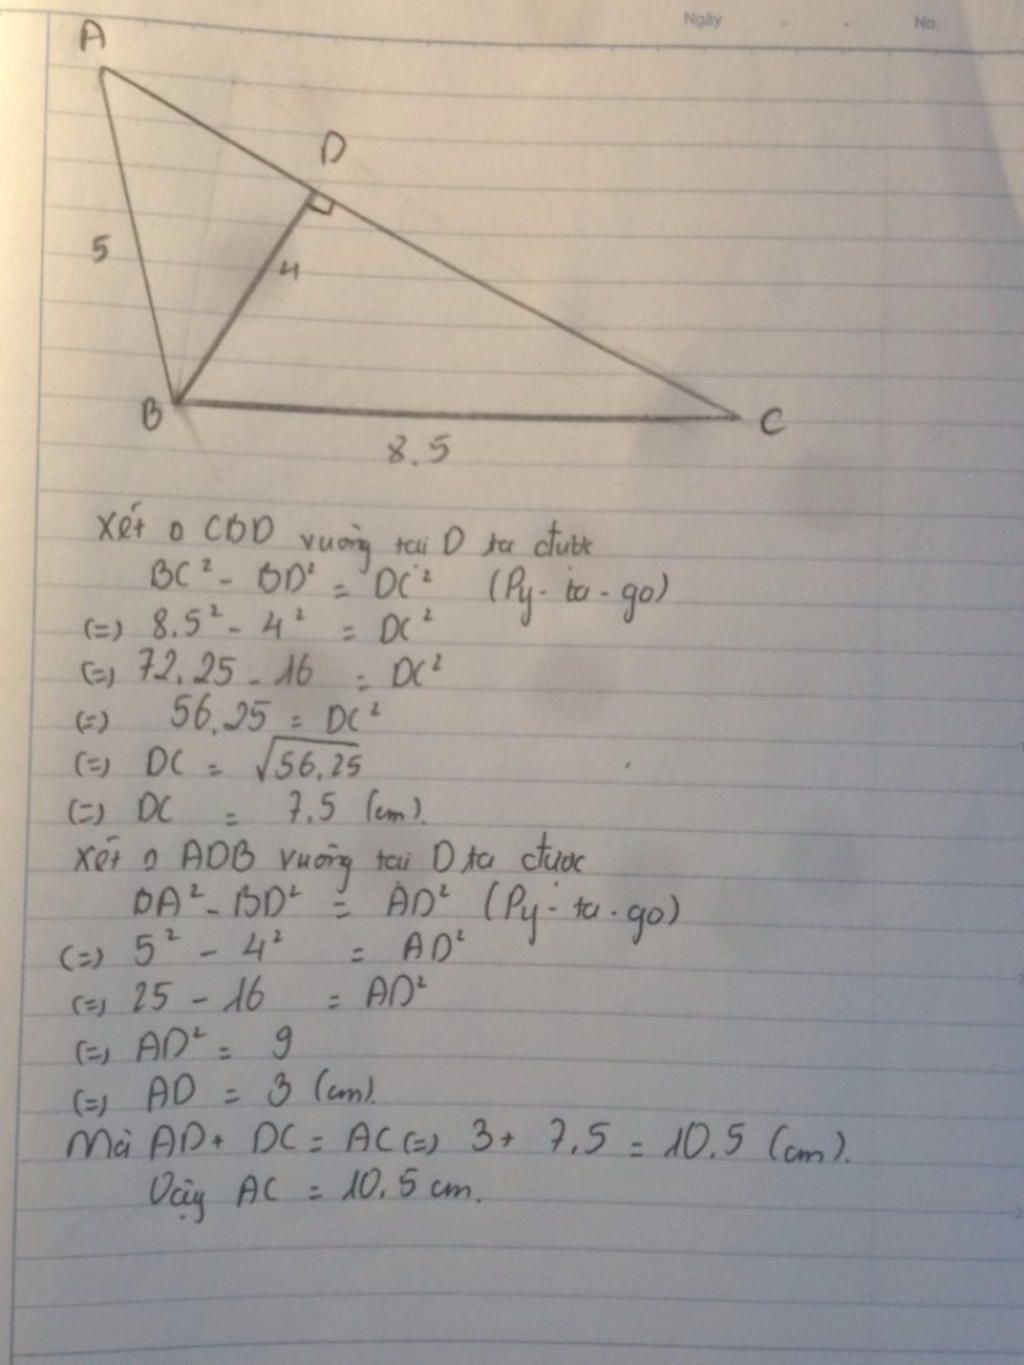 Ngày . . No.
A
D
5
4
B
C
8.5
Xét △ CBD vuông tại D ta được
BC² - BD² = DC² (Py-ta-go)
(=) 8.5² - 4² = DC²
(=) 72.25 - 16 = DC²
(=) 56.25 = DC²
(=) DC = √56.25
(=) DC = 7.5 (cm).
Xét △ ADB vuông tại D ta được
BA² - BD² = AD² (Py-ta-go)
(=) 5² - 4² = AD²
(=) 25 - 16 = AD²
(=) AD² = 9
(=) AD = 3 (cm).
Mà AD + DC = AC (=) 3 + 7.5 = 10.5 (cm).
Vậy AC = 10.5 cm.